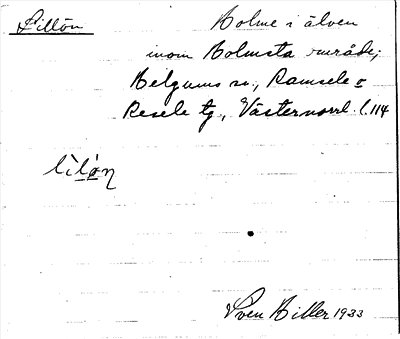 Lillön
Holme i älven
inom Holmsta område;
Helgums sn, Ramsele o
Resele tg, Västernorrl. l. 114
lìlǿn
Sven Hiller 1933